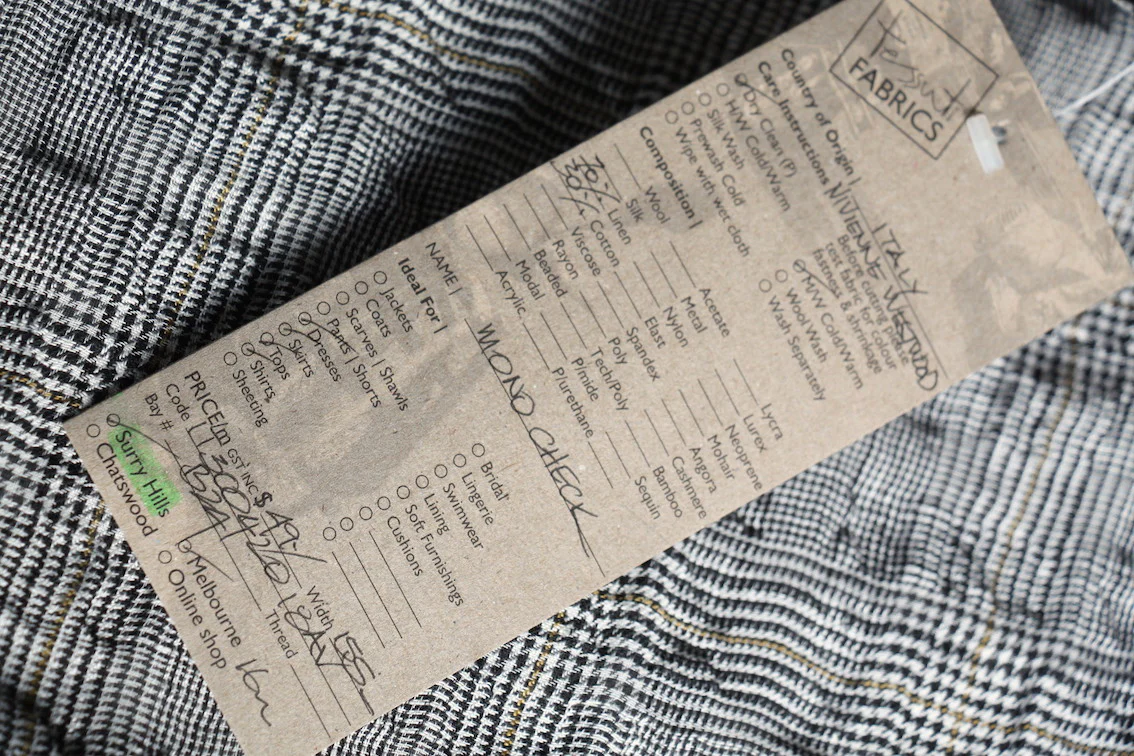 Tessuti
FABRICS
Country of Origin | ITALY
Care Instructions
Dry Clean (P)
H/W Cold/Warm
Silk Wash
Prewash Cold
Wipe with wet cloth
Before cutting please
test fabric for colour
fastness & shrinkage
M/W Cold/Warm
Wool Wash
Wash Separately
Composition |
Wool
Silk
70% Linen
30% Cotton
Viscose
Rayon
Beaded
Modal
Acrylic
Acetate
Metal
Nylon
Elast
Spandex
Poly
Tech/Poly
P/mide
P/urethane
Lycra
Lurex
Neoprene
Mohair
Angora
Cashmere
Bamboo
Sequin
NAME | MONO CHECK
Ideal For |
Jackets
Coats
Scarves | Shawls
Pants | Shorts
Dresses
Skirts
Tops
Shirts
Sheeting
Bridal
Lingerie
Swimwear
Lining
Soft Furnishings
Cushions
PRICE/m GST INC $ 49.- Width 155
Code
Bay # Thread
Surry Hills
Chatswood
Melbourne
Online shop